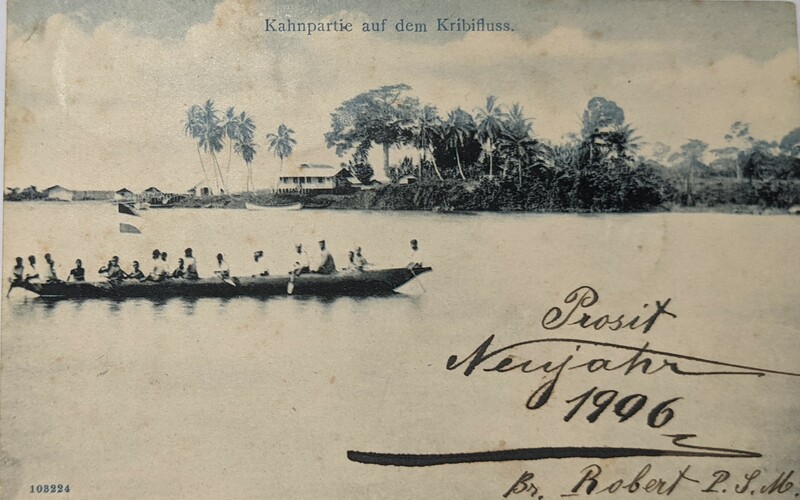 Kahnpartie auf dem Kribifluss.
Prosit
Neujahr
1906
Br. Robert P.S.M
103224